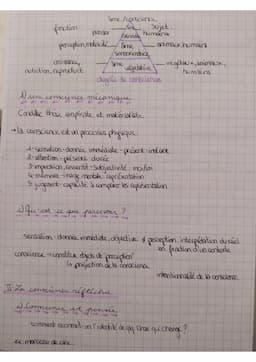 âme / conscience
fonction sujet
penser âme pensante humains
perception, mobilité âme sensorimotrice animaux, humains
croissance, nutrition, reproduct° âme végétative végétaux, animaux, humains
degrés de conscience
1) une conscience mécanique
Condillac
→ la conscience est un processus physique
1- sensation - donnée immédiate - présent - instant
2- attention - présent - durée
3- impression, - subjectivité -
4- mémoire - image mentale, représentation
5- jugement - capacité à comparer les représentations
2) Qu'est-ce que percevoir ?
sensation - donnée immédiate, objective ≠ perception - interprétation du réel
en fonction d'un contexte
conscience → constitue objets de perception
↳ projection de la conscience
intentionnalité de la conscience
II- La conscience réfléchie
1) Conscience et pensée
comment reconnaît-on l'identité de qq chose qui change ?
ex: morceau de cire